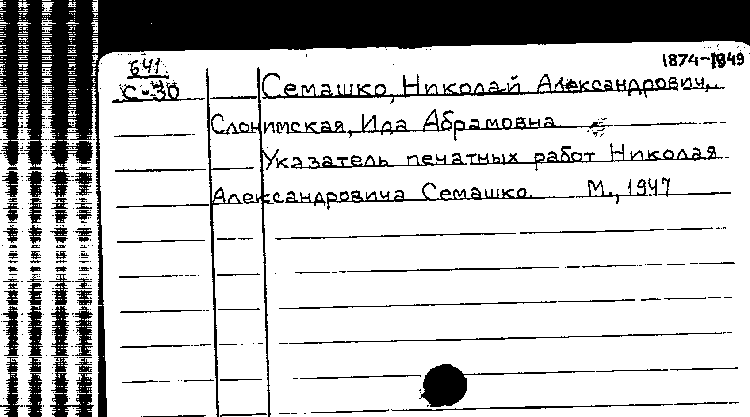 1874-1849
641
С-30 Семашко, Николай Александрович,
Слонимская, Ида Абрамовна
Указатель печатных работ Николая
Александровича Семашко. М., 1947